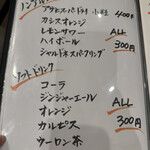 ノンアルコール
アサヒスーパードライ 小瓶 400円
カシスオレンジ
レモンサワー ALL
ハイボール 300円
シャルドネスパークリング
ソフトドリンク
コーラ
ジンジャーエール ALL
オレンジ 300円
カルピス
ウーロン茶